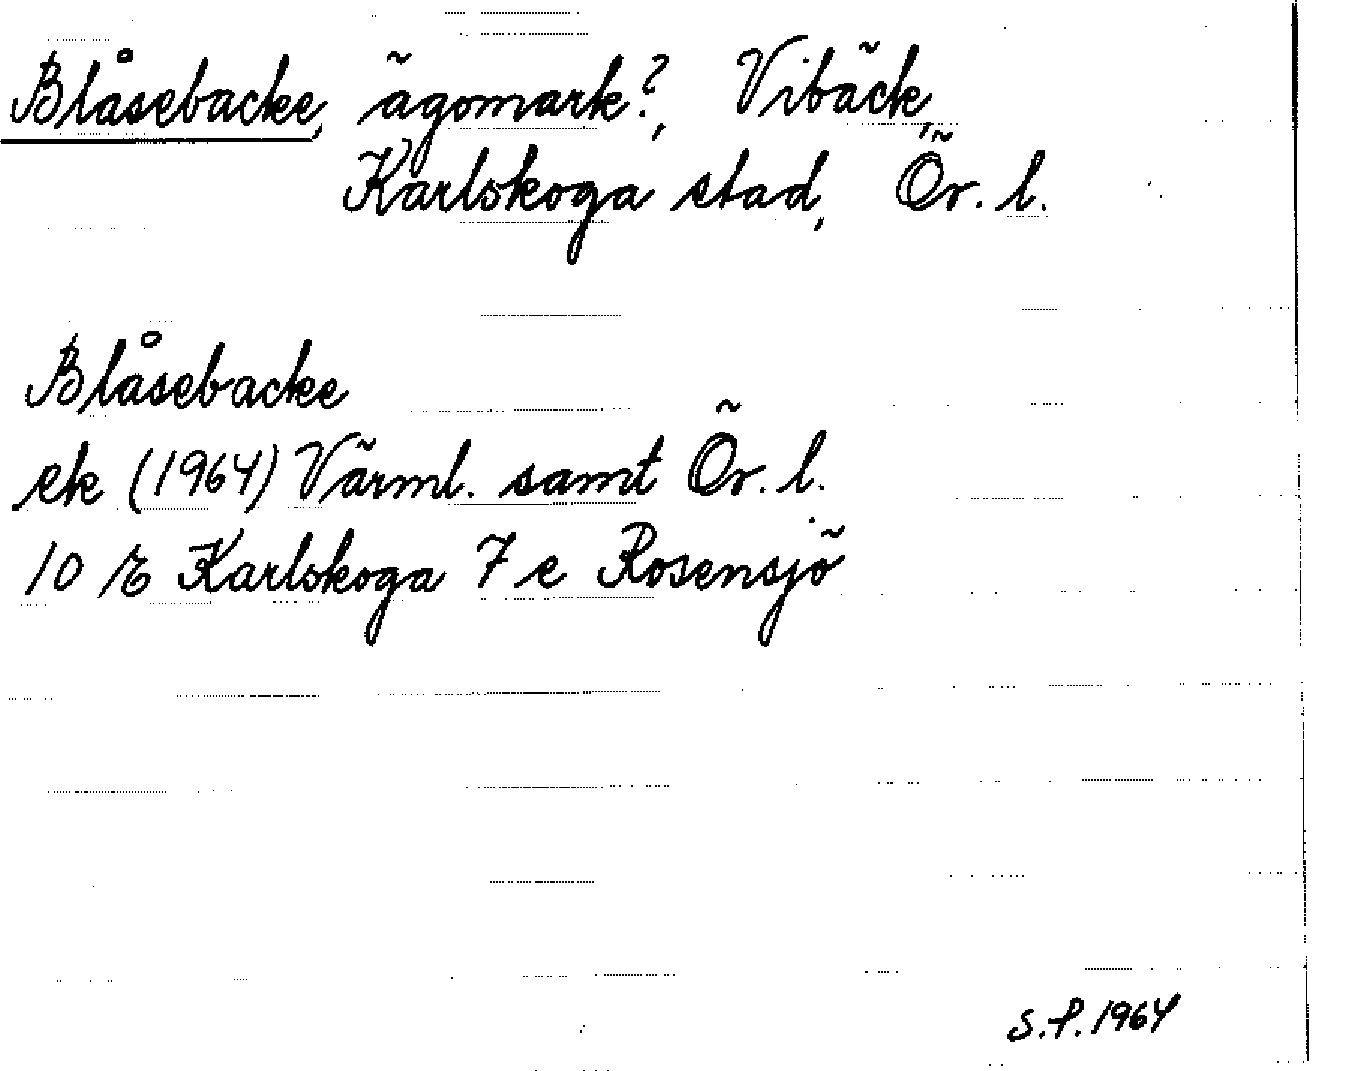 Blåsebacke, ägomark?, Vibäck,
Karlskoga stad, Ör. l.
Blåsebacke
ek (1964) Värml. samt Ör. l.
10 E Karlskoga 7 e Rosensjö
S.P. 1964